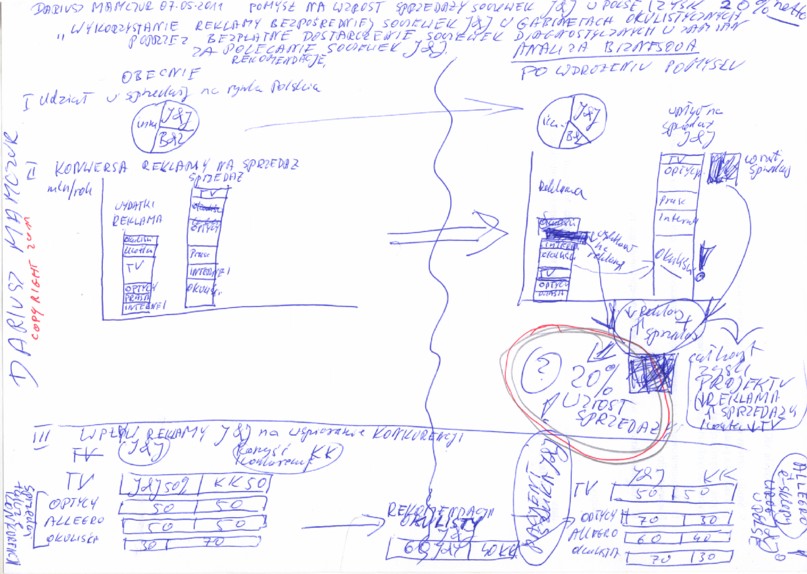 DARIUSZ MAMCZUR 07.05.2011 POMYSŁ NA WZROST SPRZEDAŻY SOCZEWEK J&J U POLSCE (ZYSK 20% netto
"WYKORZYSTANIE REKLAMY BEZPOŚREDNIEJ SOCZEWEK J&J U GABINETACH OKULISTYCZNYCH
POPRZEZ BEZPŁATNE DOSTARCZENIE SOCZEWEK DIAGNOSTYCZNYCH U ZAMIAN
ZA POLECANIE SOCZEWEK J&J.
REKOMENDACJE
ANALIZA BIZNESOWA
OBECNIE
PO WDROŻENIU POMYSŁU
I Udział w sprzedaży na rynku Polskim
J&J
B&L
J&J
B&L
wpływ na
sprzedaż
J&J
II KONWERSJA REKLAMY NA SPRZEDAŻ
mln/rok
SPRZEDAŻ
TV
WYDATKI
REKLAMA
TV
OPTYCY
PRASA
INTERNET
OPTYCY
Prasa
INTERNET
OKULIŚCI
Reklama
TV
OPTYCY
TV
OPTYCY
Prasa
Internet
OKULIŚCI
!
wzrost
sprzedaży
↓ Reklamy
↑ Sprzedaż
?
20%
WZROST
SPRZEDAŻY
zyski
PROJEKTU
↓ REKLAMA
↑ SPRZEDAŻY
TV
DARIUSZ MAMCZUR
COPY RIGHT 2011
III WPŁYW REKLAMY J&J na wspieranie KONKURENCJI
TV
J&J
Korzyść
konkurencji KK
TV J&J 50% KK 50
OPTYCY 50 50
ALLEGRO 50 50
OKULISTA 30 70
REKOMENDACJI
OKULISTY
J&J
60 J&J 40 KK
J&J KK
TV 50 50
OPTYCY 70 30
ALLEGRO 60 40
OKULISTA 70 30
ALLEGRO